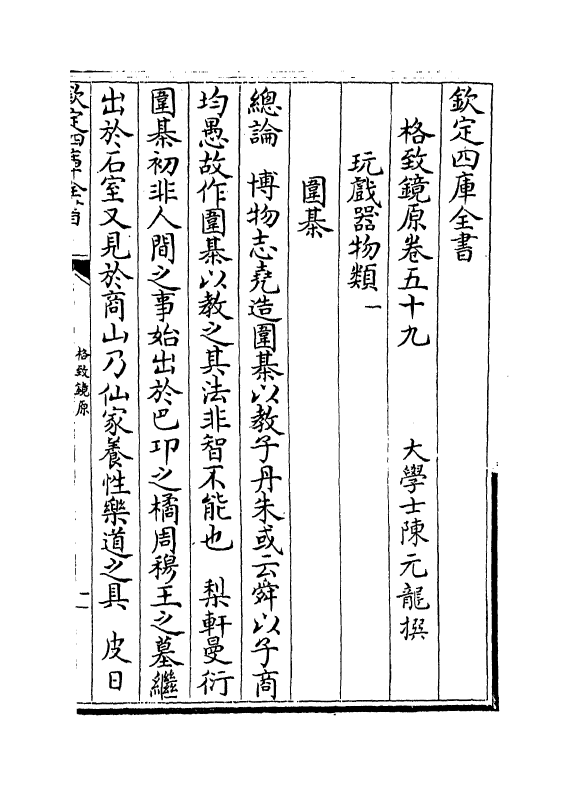 欽定四庫全書
格致鏡原卷五十九　　大學士陳元龍撰
玩戲器物類一
圍棊
總論　博物志堯造圍棊以教子丹朱或云舜以子商
均愚故作圍棊以教之其法非智不能也　梨軒曼衍
圍棊初非人間之事始出於巴邛之橘周穆王之墓繼
出於石室又見於商山乃仙家養性樂道之具　皮日
欽定四庫全書
格致鏡原